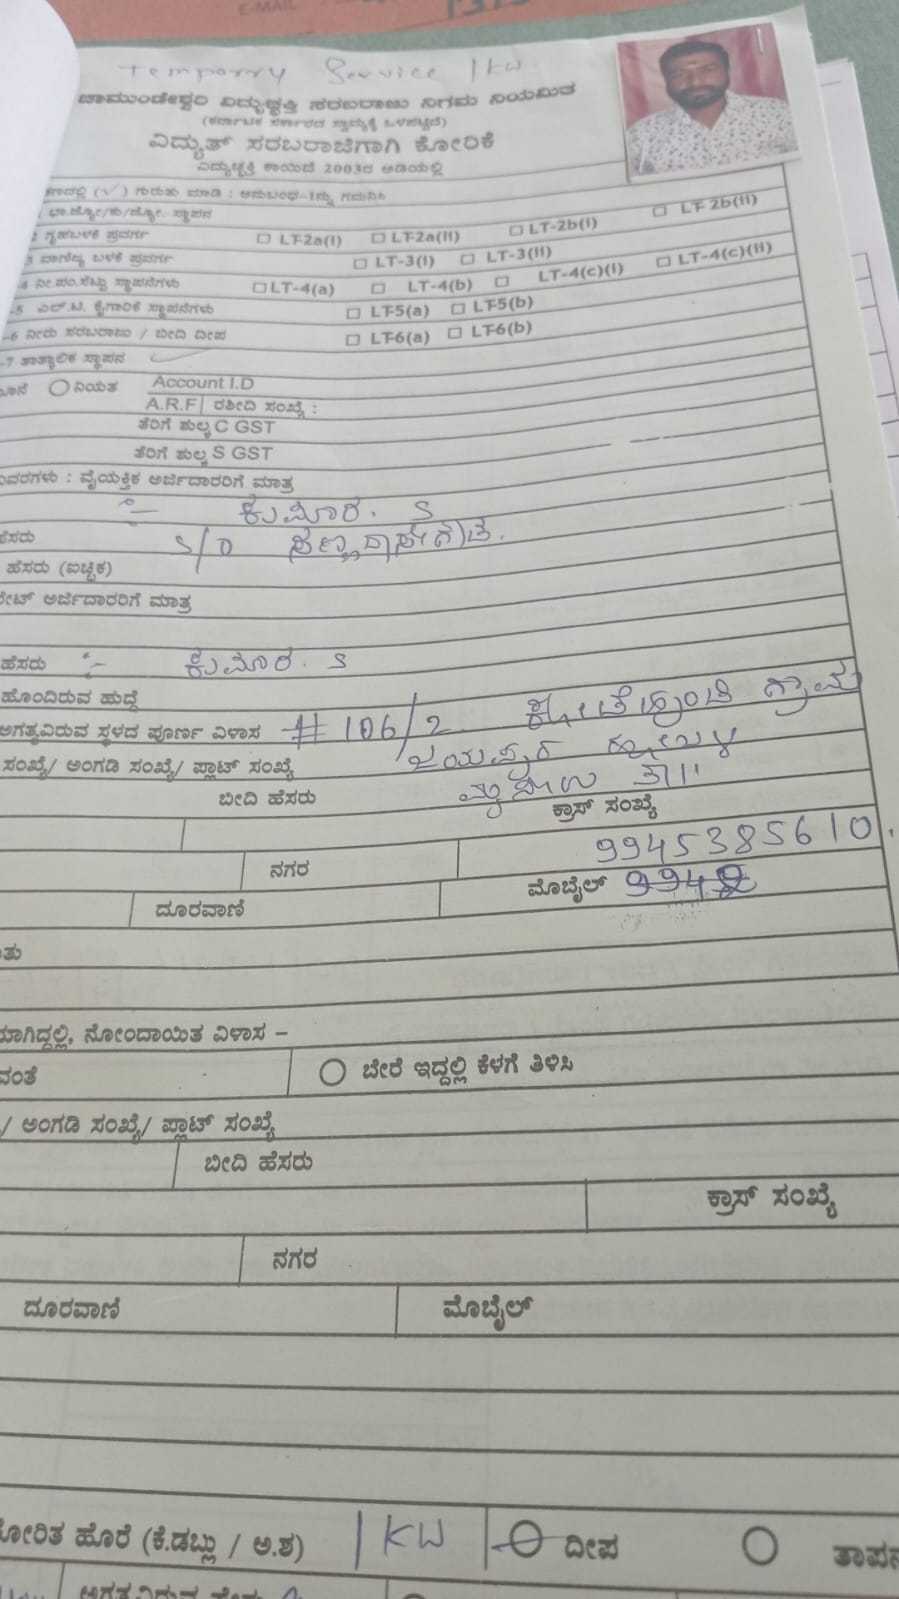 E-MAIL
Temporry Service 1kw
ಚಾಮುಂಡೇಶ್ವರಿ ವಿದ್ಯುಚ್ಛಕ್ತಿ ಸರಬರಾಜು ನಿಗಮ ನಿಯಮಿತ
(ಕರ್ನಾಟಕ ಸರ್ಕಾರದ ಸ್ವಾಮ್ಯಕ್ಕೆ ಒಳಪಟ್ಟಿದೆ)
ವಿದ್ಯುತ್ ಸರಬರಾಜಿಗಾಗಿ ಕೋರಿಕೆ
ವಿದ್ಯುಚ್ಛಕ್ತಿ ಕಾಯಿದೆ 2003ರ ಅಡಿಯಲ್ಲಿ
(√) ಗುರುತು ಮಾಡಿ : ಅನುಬಂಧ-1ನ್ನು ಗಮನಿಸಿ
ಭಾ.ಜ್ಯೋ/ಕು/ಜ್ಯೋ. ಸ್ಥಾಪನ
2 ಗೃಹಬಳಕೆ ಪ್ರವರ್ಗ LT-2a(I) LT-2a(II) LT-2b(I) LT-2b(II)
3 ವಾಣಿಜ್ಯ ಬಳಕೆ ಪ್ರವರ್ಗ LT-3(I) LT-3(II)
-4 ನೀ.ಪಂ.ಸೆಟ್ಟು ಸ್ಥಾಪನೆಗಳು LT-4(a) LT-4(b) LT-4(c)(I) LT-4(c)(II)
-5 ಎಲ್.ಟಿ. ಕೈಗಾರಿಕೆ ಸ್ಥಾಪನೆಗಳು LT-5(a) LT-5(b)
-6 ನೀರು ಸರಬರಾಜು / ಬೀದಿ ದೀಪ LT-6(a) LT-6(b)
-7 ತಾತ್ಕಾಲಿಕ ಸ್ಥಾಪನ
ನಿಯತ Account I.D
A.R.F ರಶೀದಿ ಸಂಖ್ಯೆ :
ತೆರಿಗೆ ಶುಲ್ಕ C GST
ತೆರಿಗೆ ಶುಲ್ಕ S GST
ವಿವರಗಳು : ವೈಯಕ್ತಿಕ ಅರ್ಜಿದಾರರಿಗೆ ಮಾತ್ರ
:- ಕುಮಾರ. S
ಹೆಸರು S/O ಸಣ್ಣದಾಸೇಗೌಡ.
ಹೆಸರು (ಐಚ್ಛಿಕ)
ಅರ್ಜಿದಾರರಿಗೆ ಮಾತ್ರ
ಹೆಸರು :- ಕುಮಾರ. S
ಹೊಂದಿರುವ ಹುದ್ದೆ
ಅಗತ್ಯವಿರುವ ಸ್ಥಳದ ಪೂರ್ಣ ವಿಳಾಸ # 106/2 ಕೋಟೆಹುಂಡಿ ಗ್ರಾಮ
ಸಂಖ್ಯೆ/ ಅಂಗಡಿ ಸಂಖ್ಯೆ/ ಪ್ಲಾಟ್ ಸಂಖ್ಯೆ ಜಯಪುರ ಹೋಬಳಿ
ಬೀದಿ ಹೆಸರು ಮೈಸೂರು ತಾ|| ಕ್ರಾಸ್ ಸಂಖ್ಯೆ
ನಗರ 9945385610.
ದೂರವಾಣಿ ಮೊಬೈಲ್
ನೋಂದಾಯಿತ ವಿಳಾಸ –
ಬೇರೆ ಇದ್ದಲ್ಲಿ ಕೆಳಗೆ ತಿಳಿಸಿ
/ ಅಂಗಡಿ ಸಂಖ್ಯೆ/ ಪ್ಲಾಟ್ ಸಂಖ್ಯೆ
ಬೀದಿ ಹೆಸರು
ಕ್ರಾಸ್ ಸಂಖ್ಯೆ
ನಗರ
ದೂರವಾಣಿ ಮೊಬೈಲ್
ಕೋರಿತ ಹೊರೆ (ಕೆ.ಡಬ್ಲು / ಅ.ಶ) 1 KW ದೀಪ